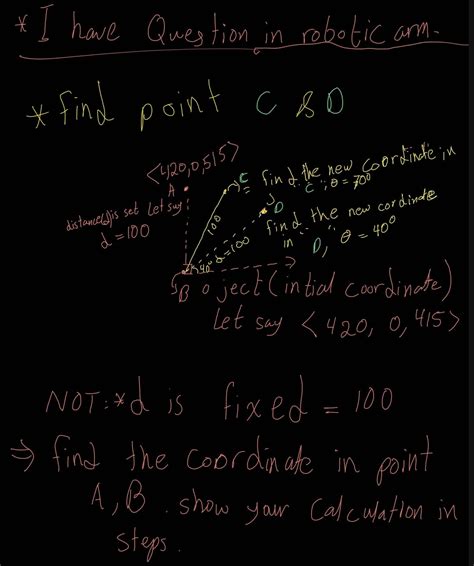 * I have Question in robotic arm.
* find point C & D
<420,0,515>
A
C
find the new coordinate in
C, θ = 70°
distance(d) is set Let say
d = 100
100
D
find the new cordinate
in D, θ = 40°
40° d=100
B oject (intial coordinate)
Let say <420, 0, 415>
NOT: *d is fixed = 100
⇒ find the coordinate in point
A, B. show your calculation in
steps.